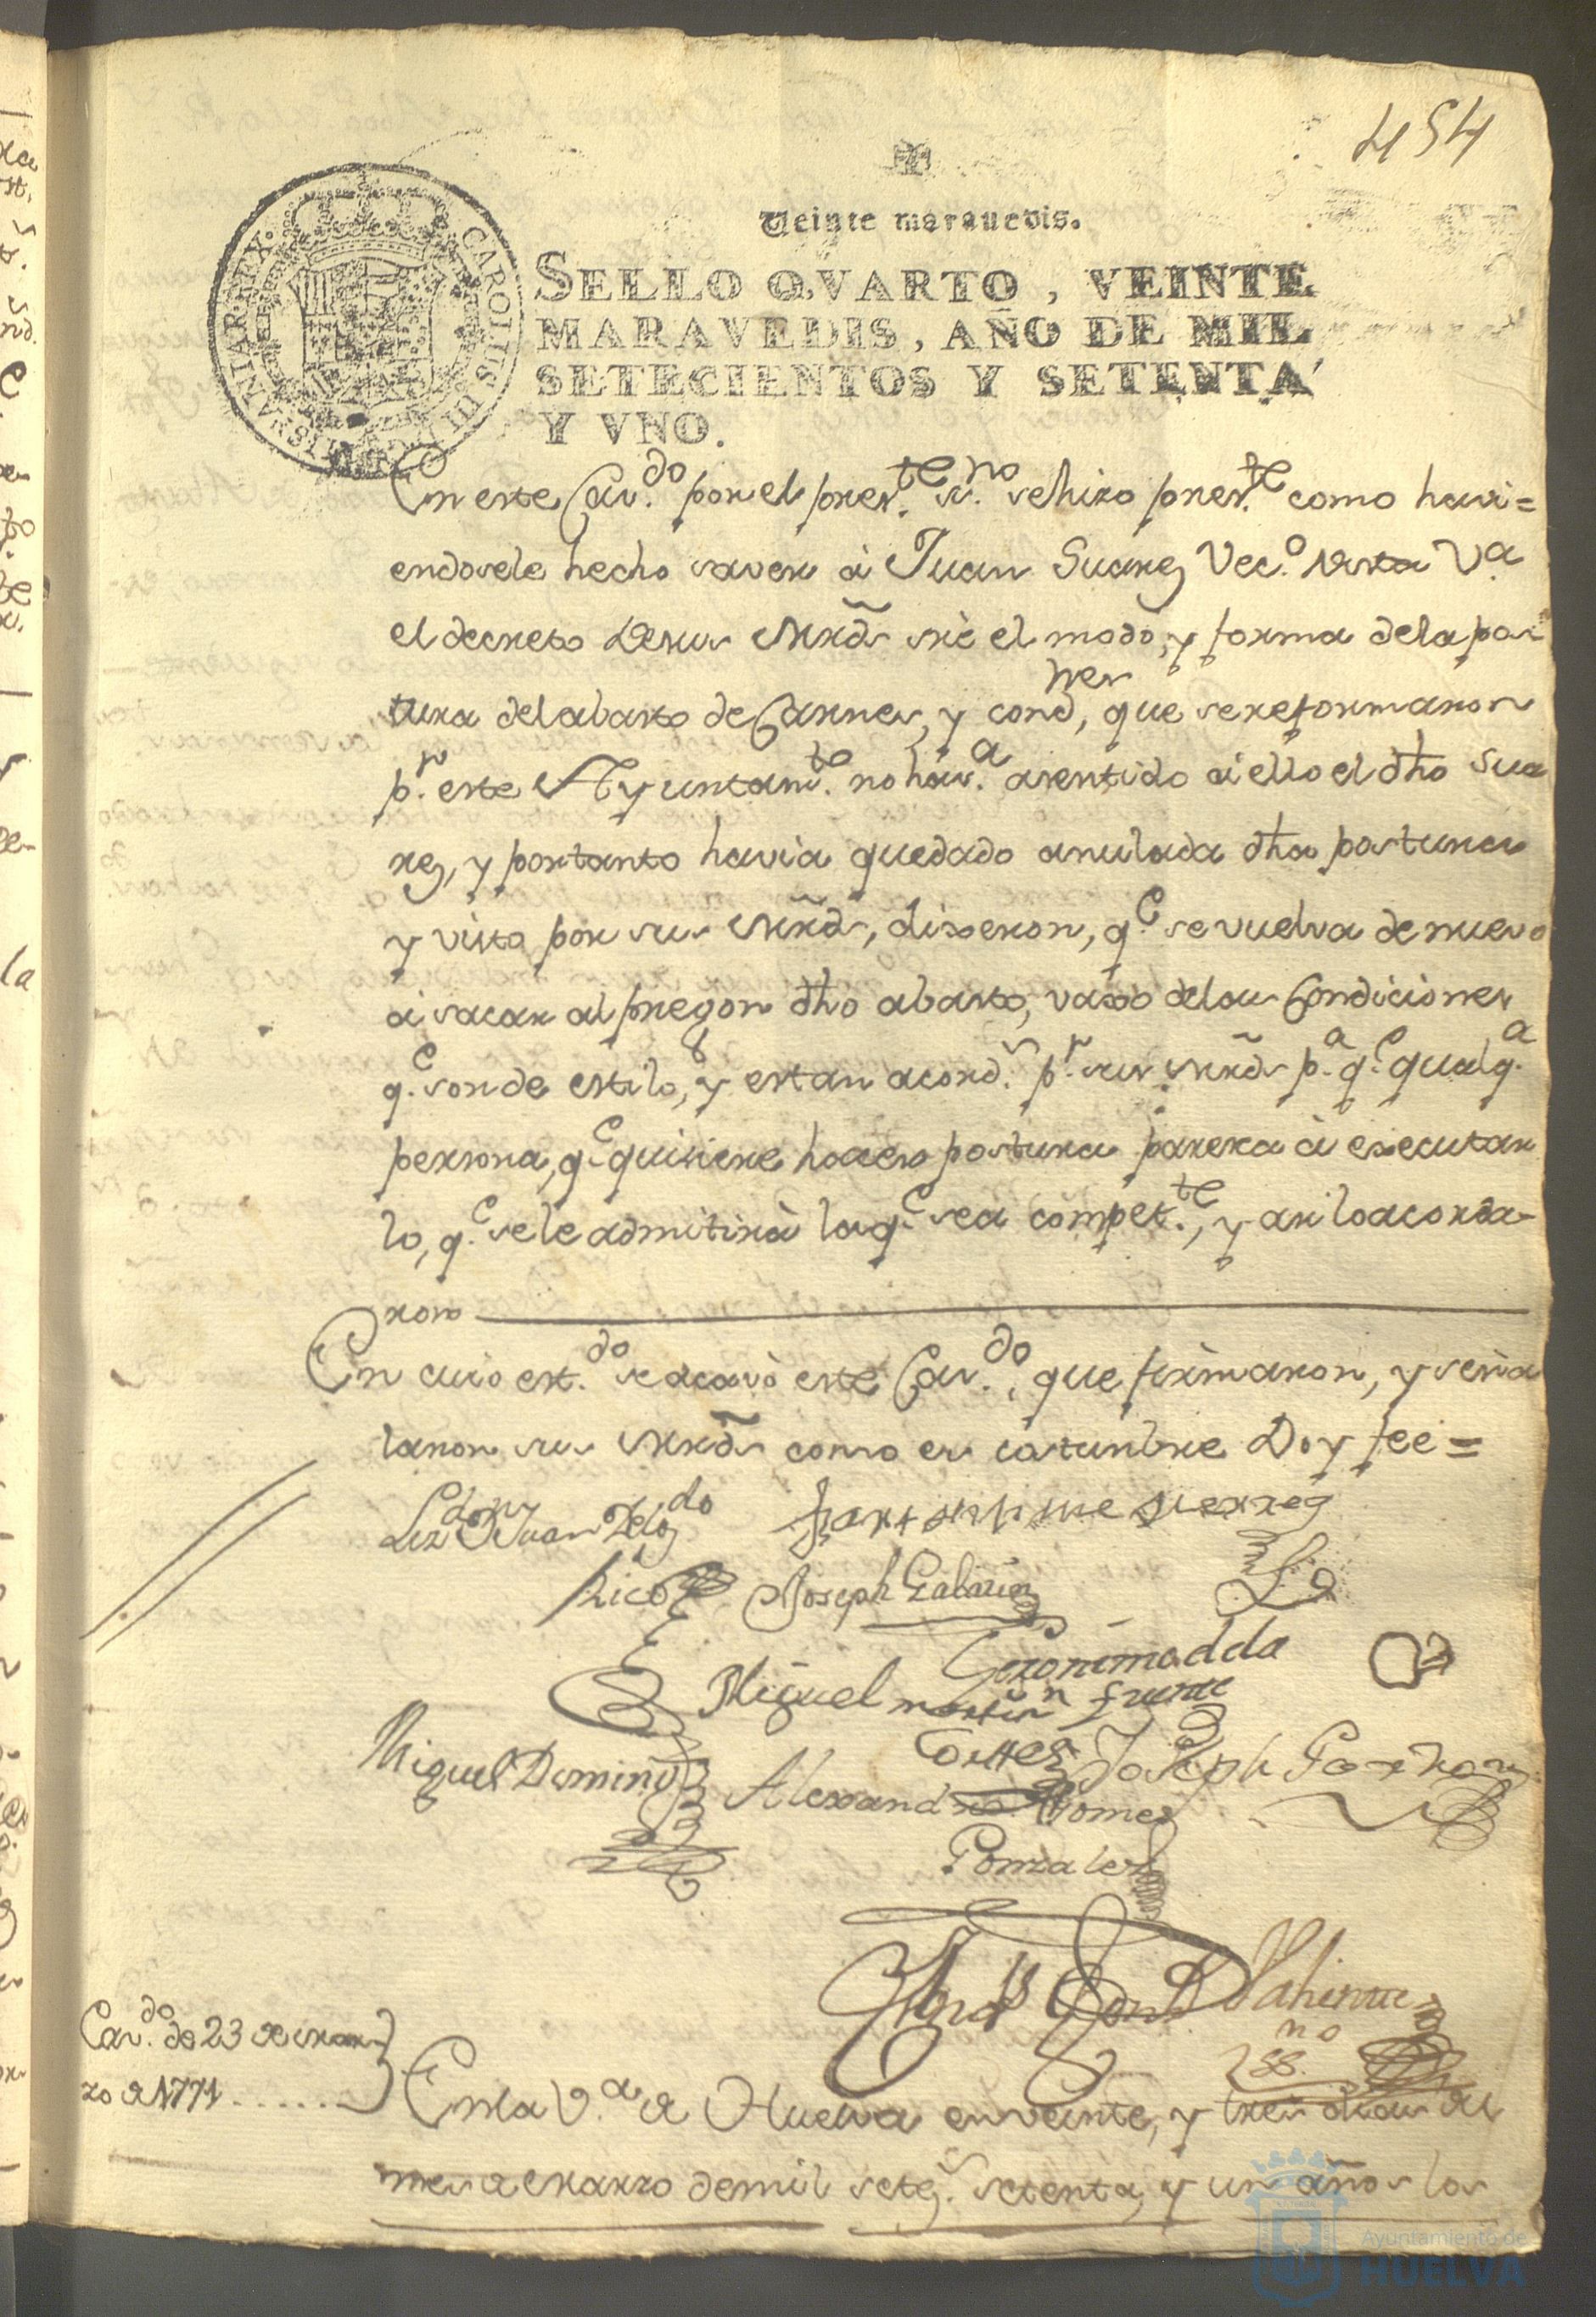 454
Veinte marauedis.
SELLO QVARTO, VEINTE
MARAVEDIS, AÑO DE MIL
SETECIENTOS Y SETENTA
Y VNO.
CAROLUS III HISPANIAR REX
En este Cav.do por el pres.te ss.no se hizo pres.te como havi=
endosele hecho saver à Juan Suarez Vec.o desta V.a
el decreto de sus mrds sre el modo, y forma de la pos
tura del abasto de Carnes, y cond.nes, que se reformaron
p.r este Ayuntam.to no hav.a asentido à ello el dho Sua
rez, y portanto havia quedado anulada dha postura
y visto por sus mrds, dixeron, q.e se vuelva de nuevo
à sacar al pregon dho abasto, vaxo delas Condiciones
q.e son de estilo, y estan acord.s p.r sus mrds p.a q.e qualq.a
persona, q.e quisiere hacer postura paresca à executar
lo, q.e sele admitirà la q.e sea compet.te, y asi lo acorda-
ron
En cuio est.do se acavò este Cav.do, que firmaron, y seña
laron sus mrds como es costumbre Doy fee=
Lizdo Dn Juan Delg.do
Rico
Joseph Gabarin
Geronimo dela
fuente
Miguel martin
Cortes
Miguel Domin
Joseph Garzon
Alexandro Gomez
Gonzalez
ss.no
Cav.do de 23 de mar-
zo d 1771......
En la V.a de Huelva en veinte, y tres dias del
mes de marzo de mil setez.s setenta, y un años los
Ayuntamiento de
HUELVA